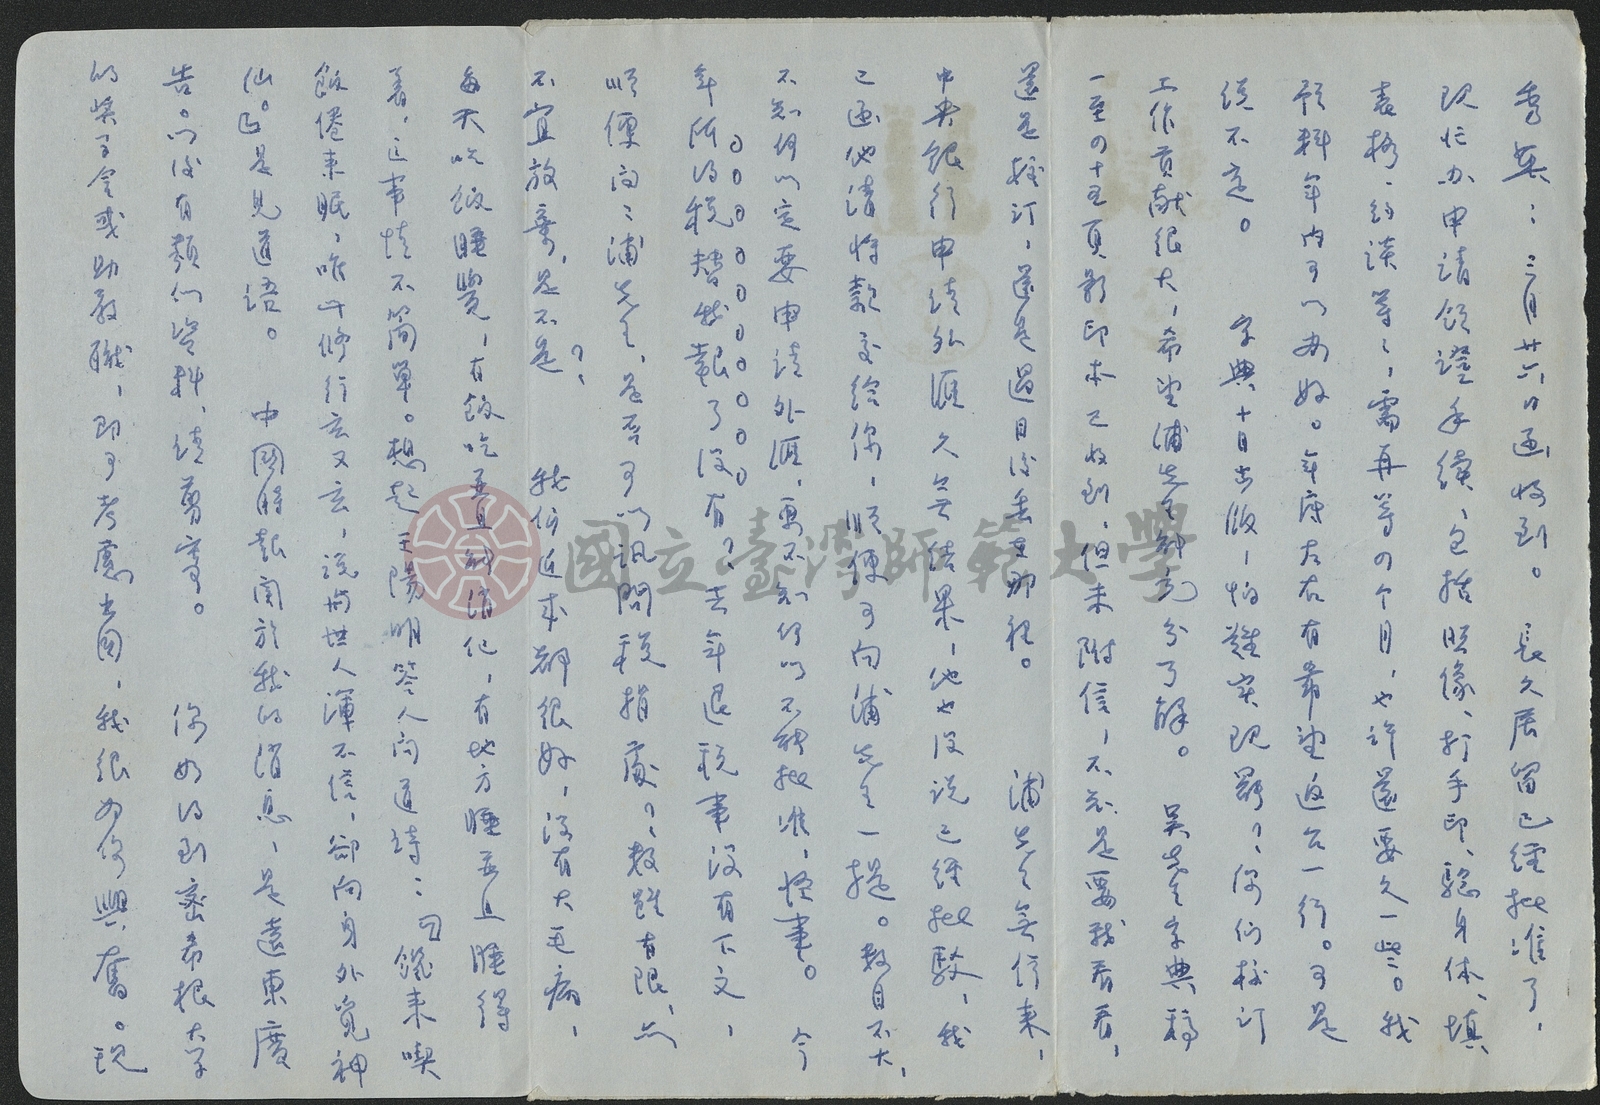 秀英：三月廿六日函收到。 長久居留已經批准了，
現忙办申請領證手續，包括照像、打手印、驗身体、填
表格、約談等，需再等四个月，也許還要久一些。我
預料年内可以办好。年底左右有希望返台一行。可是
說不定。 字典十月出版，怕難实現罷？你们校訂
工作貢献很大，希望浦先生能充分了解。 吳先生字典稿
一至四十五頁影印本已收到，但未附信，不知是要我看看，
還是校訂，還是過目後丢在那裡。 浦先生無信来，
中央銀行申請外匯久無结果，他也没說已經批駁，我
已函他請將款交给你，順便可向浦先生一提。数目不大，
不知何以定要申請外匯，更不知何以不能批准，怪事。 今
年所得税替我報了没有？去年退税事没有下文，
順便问：浦先生，是否可以訊問税捐處？数雖有限，亦
不宜放棄，是不是？ 我们近来都很好，没有大毛病，
每天吃飯睡覺，有飯吃並且能消化，有地方睡並且睡得
着，這事情不簡單。想起王陽明答人问道诗：「饑来喫
飯倦来眠，唯此修行玄又玄，說与世人渾不信，卻向身外覓神
仙。」是見道語。 中國時報関於我的消息，是遠東廣
告。以後有類似資料，請剪寄。 你如得到密希根大学
的奬学金或助教職，即可考慮出国，我很为你興奮。現
國立臺灣師範大學